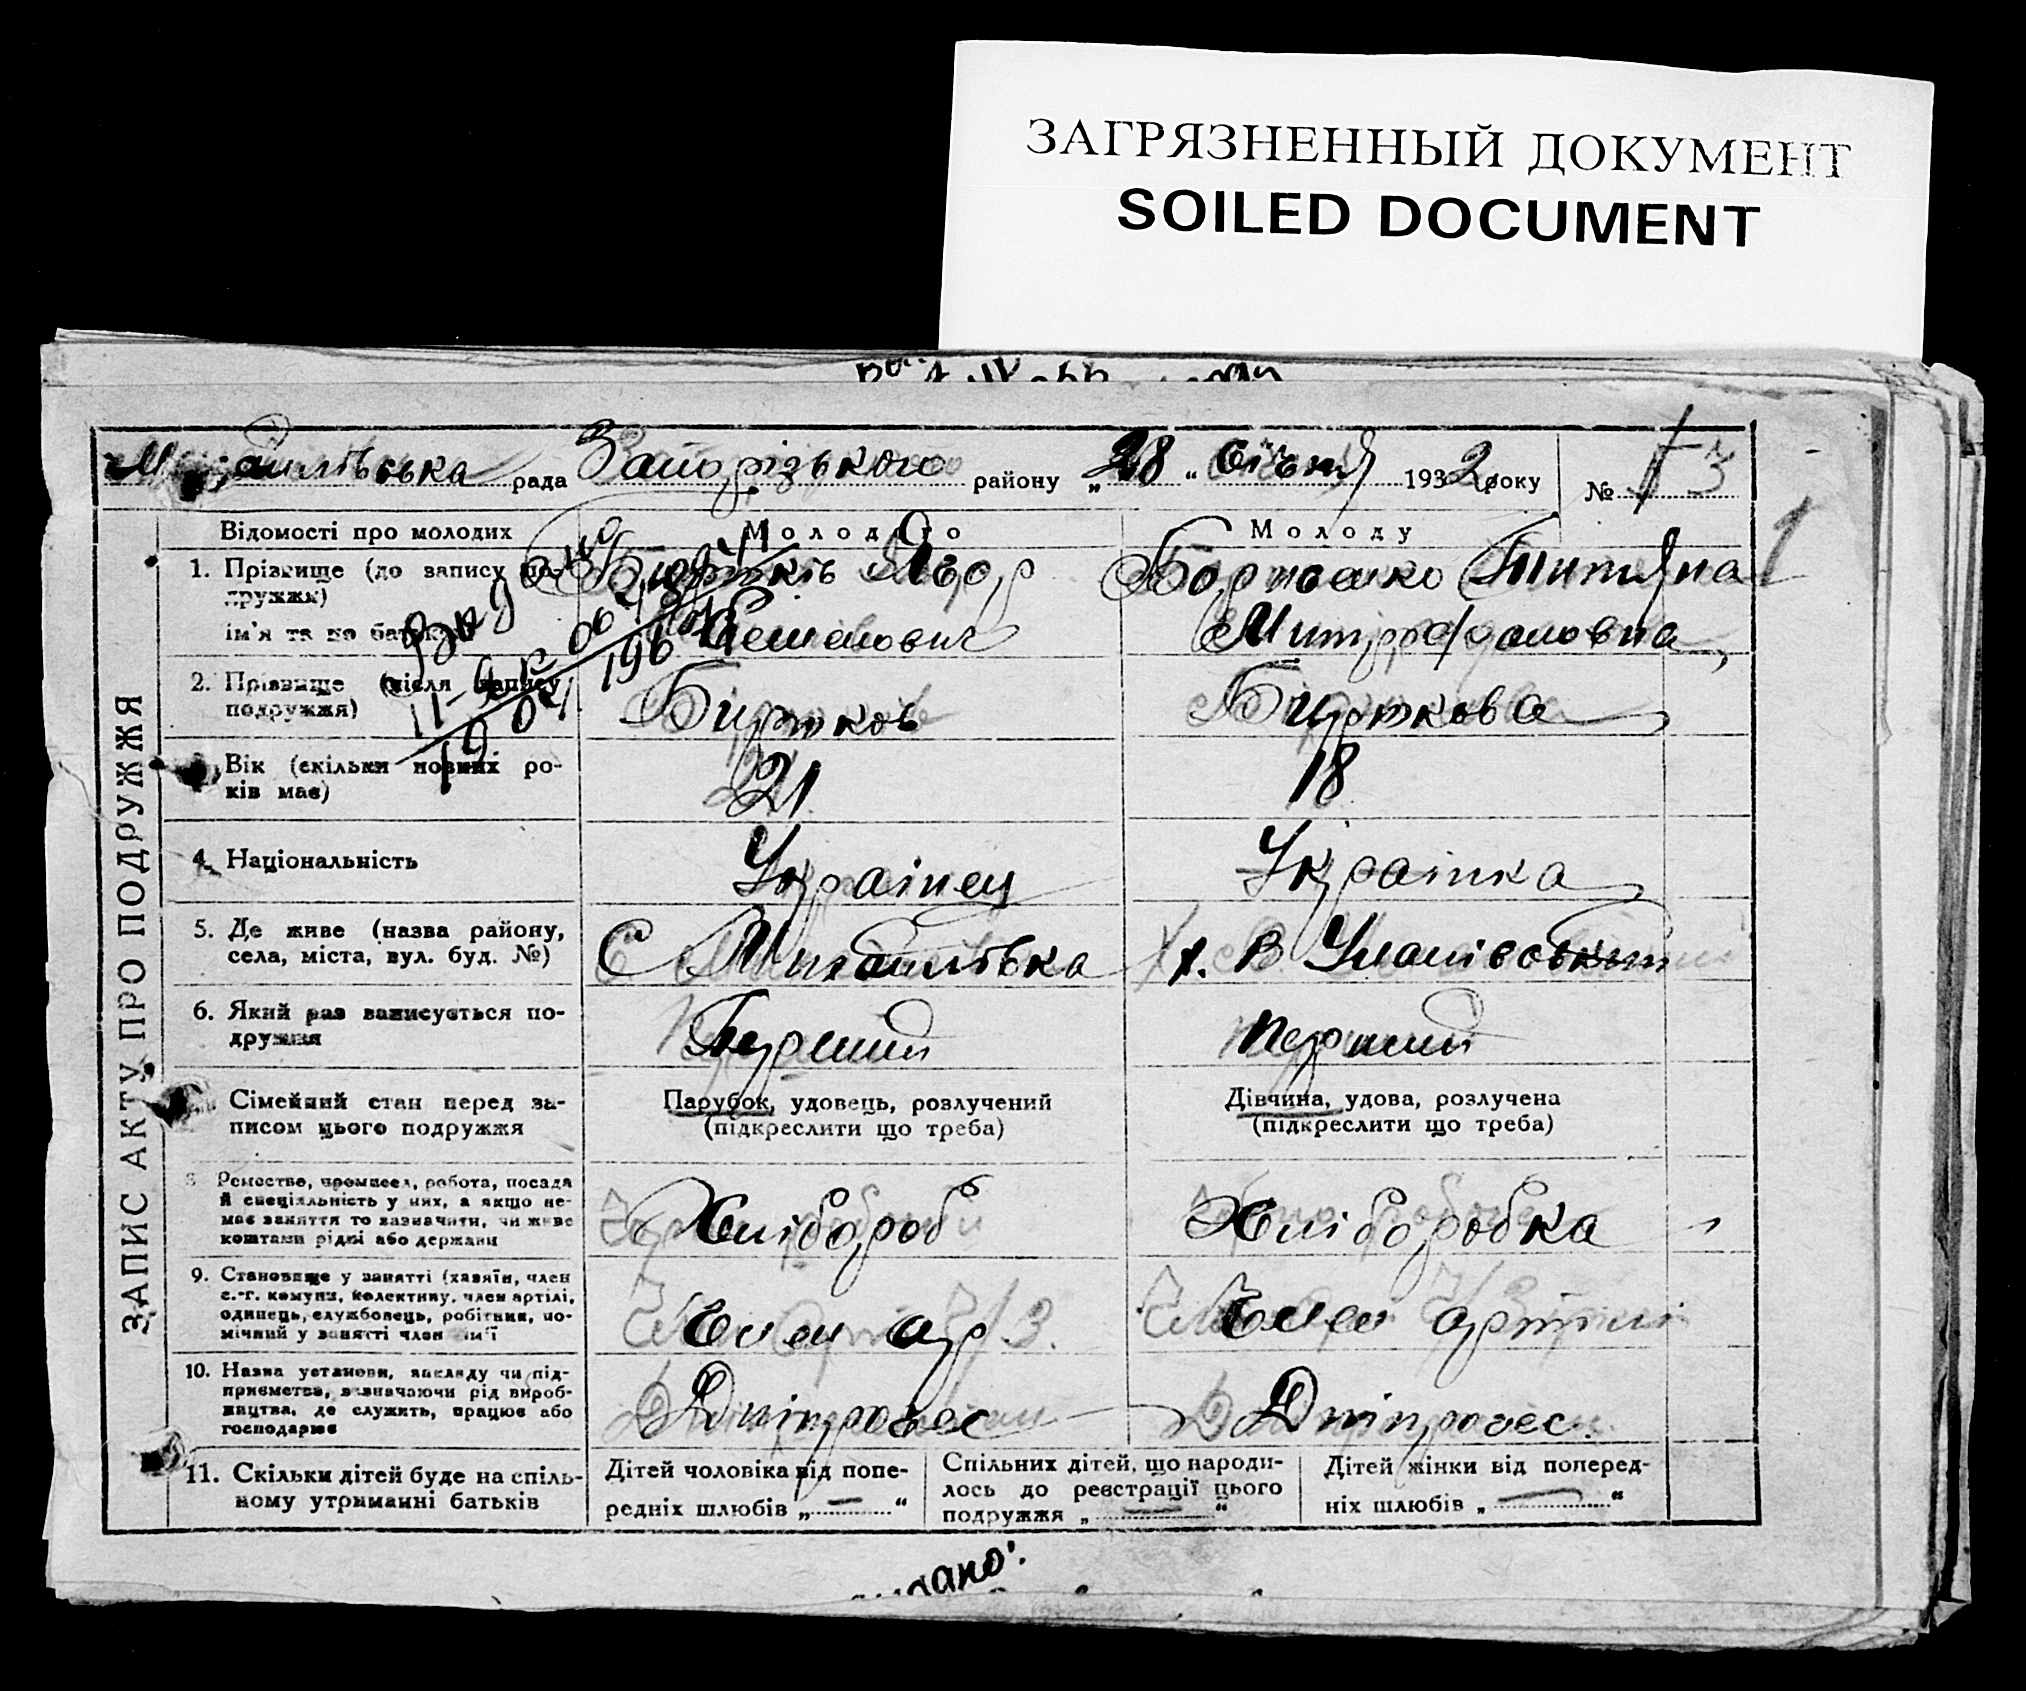 ЗАГРЯЗНЕННЫЙ ДОКУМЕНТ
SOILED DOCUMENT
Михайлівська рада Запорізького району „28“ Січня 1932 року № 3
1
ЗАПИС АКТУ ПРО ПОДРУЖЖЯ
Відомості про молодих
Молодого
Молоду
1. Прізвище (до запису по-
дружжя)
ім'я та по батькові
Бортенко Титяна
Митрофановна
2. Прізвище (після запису
подружжя)
Буртков
Буркова
3. Вік (скільки повних ро-
ків має)
21
18
4. Національність
Українец
Українка
5. Де живе (назва району,
села, міста, вул. буд. №)
С Михайлівка
х. В
6. Який раз записується по-
дружжя
Перший
перший
Сімейний стан перед за-
писом цього подружжя
Парубок, удовець, розлучений
(підкреслити що треба)
Дівчина, удова, розлучена
(підкреслити що треба)
8 Ремество, промисел, робота, посада
й спеціяльність у них, а якщо не-
має заняття то зазначити, чи живе
коштами рідні або держави
Хлібороб
Хліборобка
9. Становище у занятті (хазяїн, член
с.-г. комуни, колективу, член артілі,
одинець, службовець, робітник, по-
мічний у занятті член сім'ї
Член ар
Член артілі
10. Назва установи, закладу чи під-
приємства, зазначаючи рід вироб-
ництва, де служить, працює або
господарює
Дніпрогес
Дніпрогес.
11. Скільки дітей буде на спіль-
ному утриманні батьків
Дітей чоловіка від попе-
редніх шлюбів „—“
Спільних дітей, що народи-
лось до реєстрації цього
подружжя „—“
Дітей жінки від поперед-
ніх шлюбів „—“